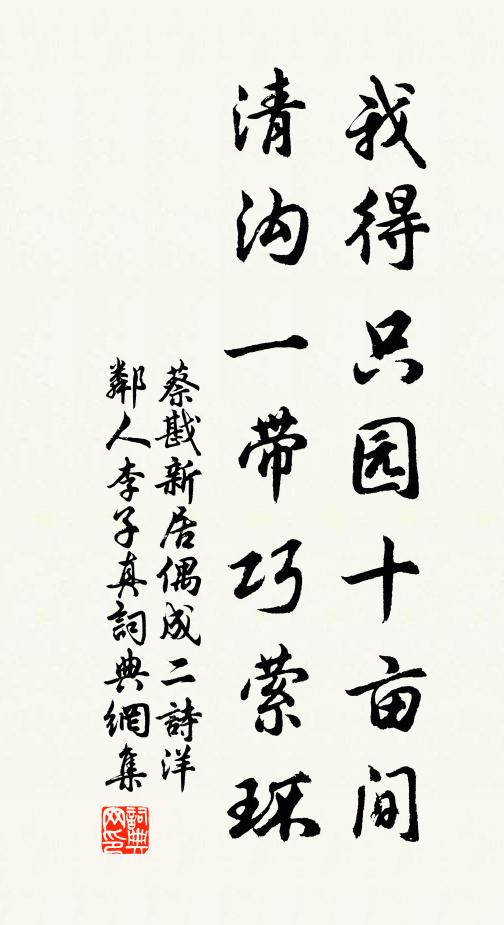 我得只园十亩间
清沟一带巧萦环
蔡戡新居偶成二詩洋
鄰人李子真詞典網集
詞典网印